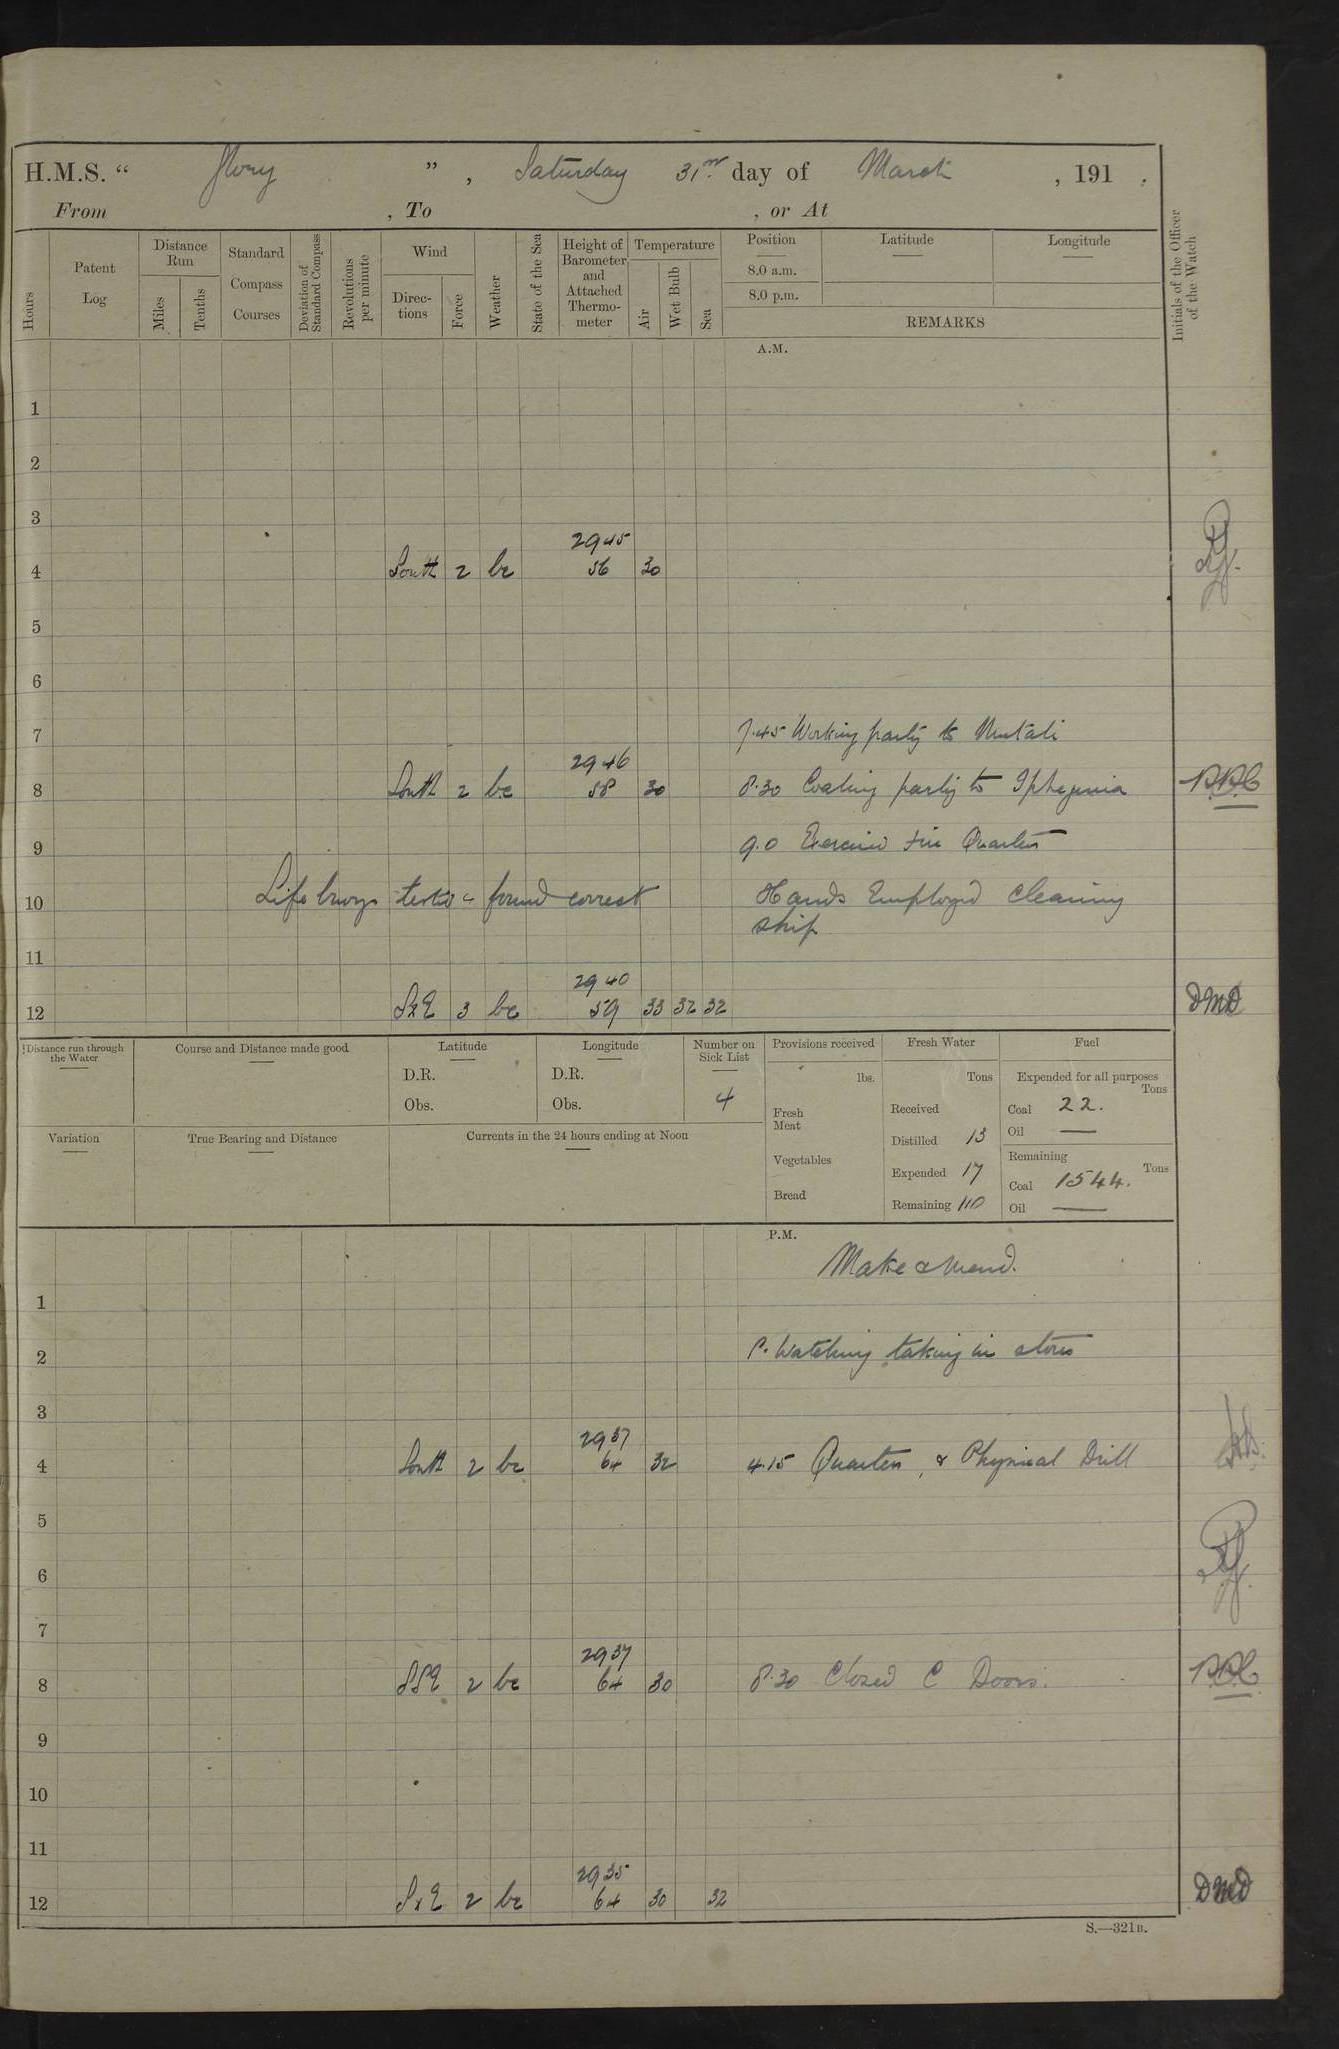 H.M.S. “ Glory ” , Saturday 31st day of March , 191 .
From , To , or At
Hours
Patent Log
Distance Run
Miles
Tenths
Standard Compass Courses
Deviation of Standard Compass
Revolutions per minute
Wind
Directions
Force
Weather
State of the Sea
Height of Barometer and Attached Thermometer
Temperature
Air
Wet Bulb
Sea
Position
8.0 a.m.
8.0 p.m.
Latitude
Longitude
REMARKS
Initials of the Officer of the Watch
A.M.
1
2
3
2945
4 South 2 bc 56 30
5
6
7 7.45 Working party to
2946
8 South 2 bc 58 30 8.30 Coaling party to Iphegenia
9 9.0 Exercised Fire Quarters
10 Life buoys tested & found correct Hands Employed cleaning
ship
11
2940
12 SxE 3 bc 59 33 32 32 DMD
Distance run through the Water
Course and Distance made good
Latitude
D.R.
Obs.
Longitude
D.R.
Obs.
Number on Sick List
4
Provisions received
lbs.
Fresh Meat
Vegetables
Bread
Fresh Water
Tons
Received
Distilled 13
Expended 17
Remaining 110
Fuel
Expended for all purposes
Tons
Coal 22.
Oil —
Remaining
Tons
Coal 1544.
Oil —
Variation
True Bearing and Distance
Currents in the 24 hours ending at Noon
P.M.
Make & Mend.
1
2 P. Watch taking in stores
3
2937
4 South 2 bc 64 32 4.15 Quarters, & Physical Drill
5
6
7
2937
8 SSE 2 bc 64 30 8.30 Closed C Doors.
9
10
11
2935
12 SxE 2 bc 64 30 32 DMD
S.—321B.